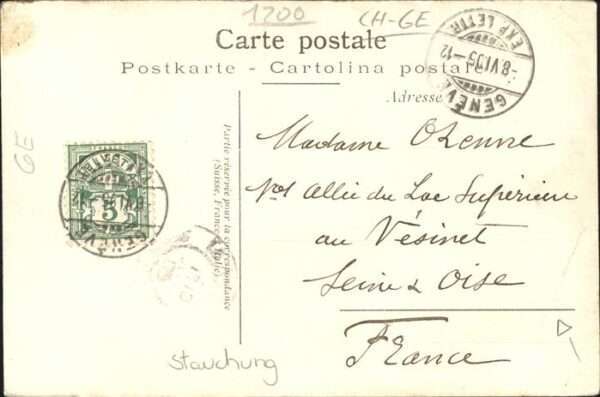 1200
CH-GE
Carte postale
Postkarte - Cartolina postale
Adresse
GENÈVE
EXP. LETTR.
-8.VI.05-12
GE
HELVETIA
5
GENÈVE
Partie réservée pour la correspondance
(Suisse, France, Italie).
Madame
allée du Lac Supérieur
au Vésinet
Seine & Oise
France
Stauchung